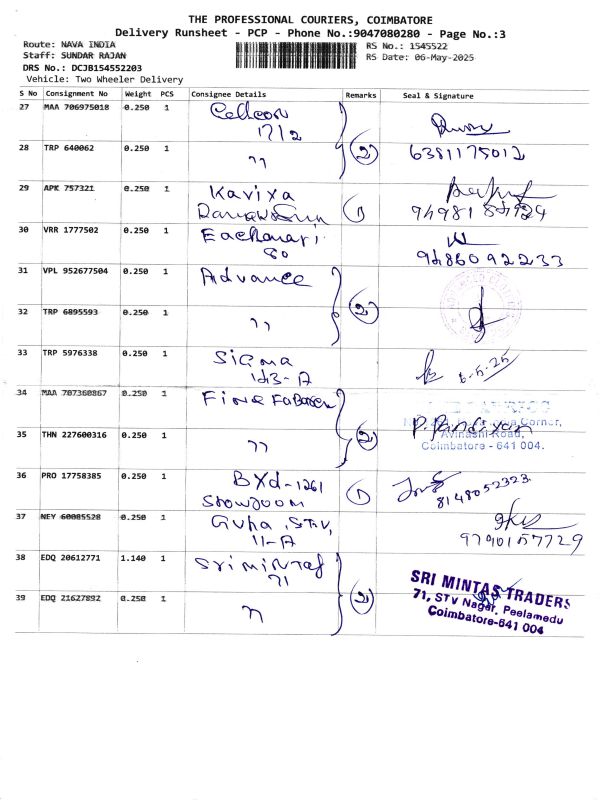 THE PROFESSIONAL COURIERS, COIMBATORE
Delivery Runsheet - PCP - Phone No.:9047080280 - Page No.:3
Route: NAVA INDIA
RS No.: 1545522
Staff: SUNDAR RAJAN
RS Date: 06-May-2025
DRS No.: DCJB154552203
Vehicle: Two Wheeler Delivery
S No Consignment No Weight PCS Consignee Details Remarks Seal & Signature
27 MAA 706975018 0.250 1 Cellcon
1712
28 TRP 640062 0.250 1 " 2 6381175012
29 APK 757321 0.250 1 Kavixa
1
30 VRR 1777502 0.250 1 Eachanari
80 9486092233
31 VPL 952677504 0.250 1 Advance
2
32 TRP 6895593 0.250 1 "
33 TRP 5976338 0.250 1 Sigma 6-5-25
143-A
34 MAA 707360867 0.250 1 Fine
P. Pandiyan
Corner,
35 THN 227600316 0.250 1 " 2 Avinashi Road,
Coimbatore - 641 004.
36 PRO 17758385 0.250 1 BXd-1261
Showroom 1 8148052323
37 NEY 60085528 0.250 1 Guha, STV,
11-A 9790157729
38 EDQ 20612771 1.140 1 Sri mintas
71
2
39 EDQ 21627892 0.250 1 "
SRI MINTAS TRADERS
71, STV Nagar, Peelamedu
Coimbatore-641 004